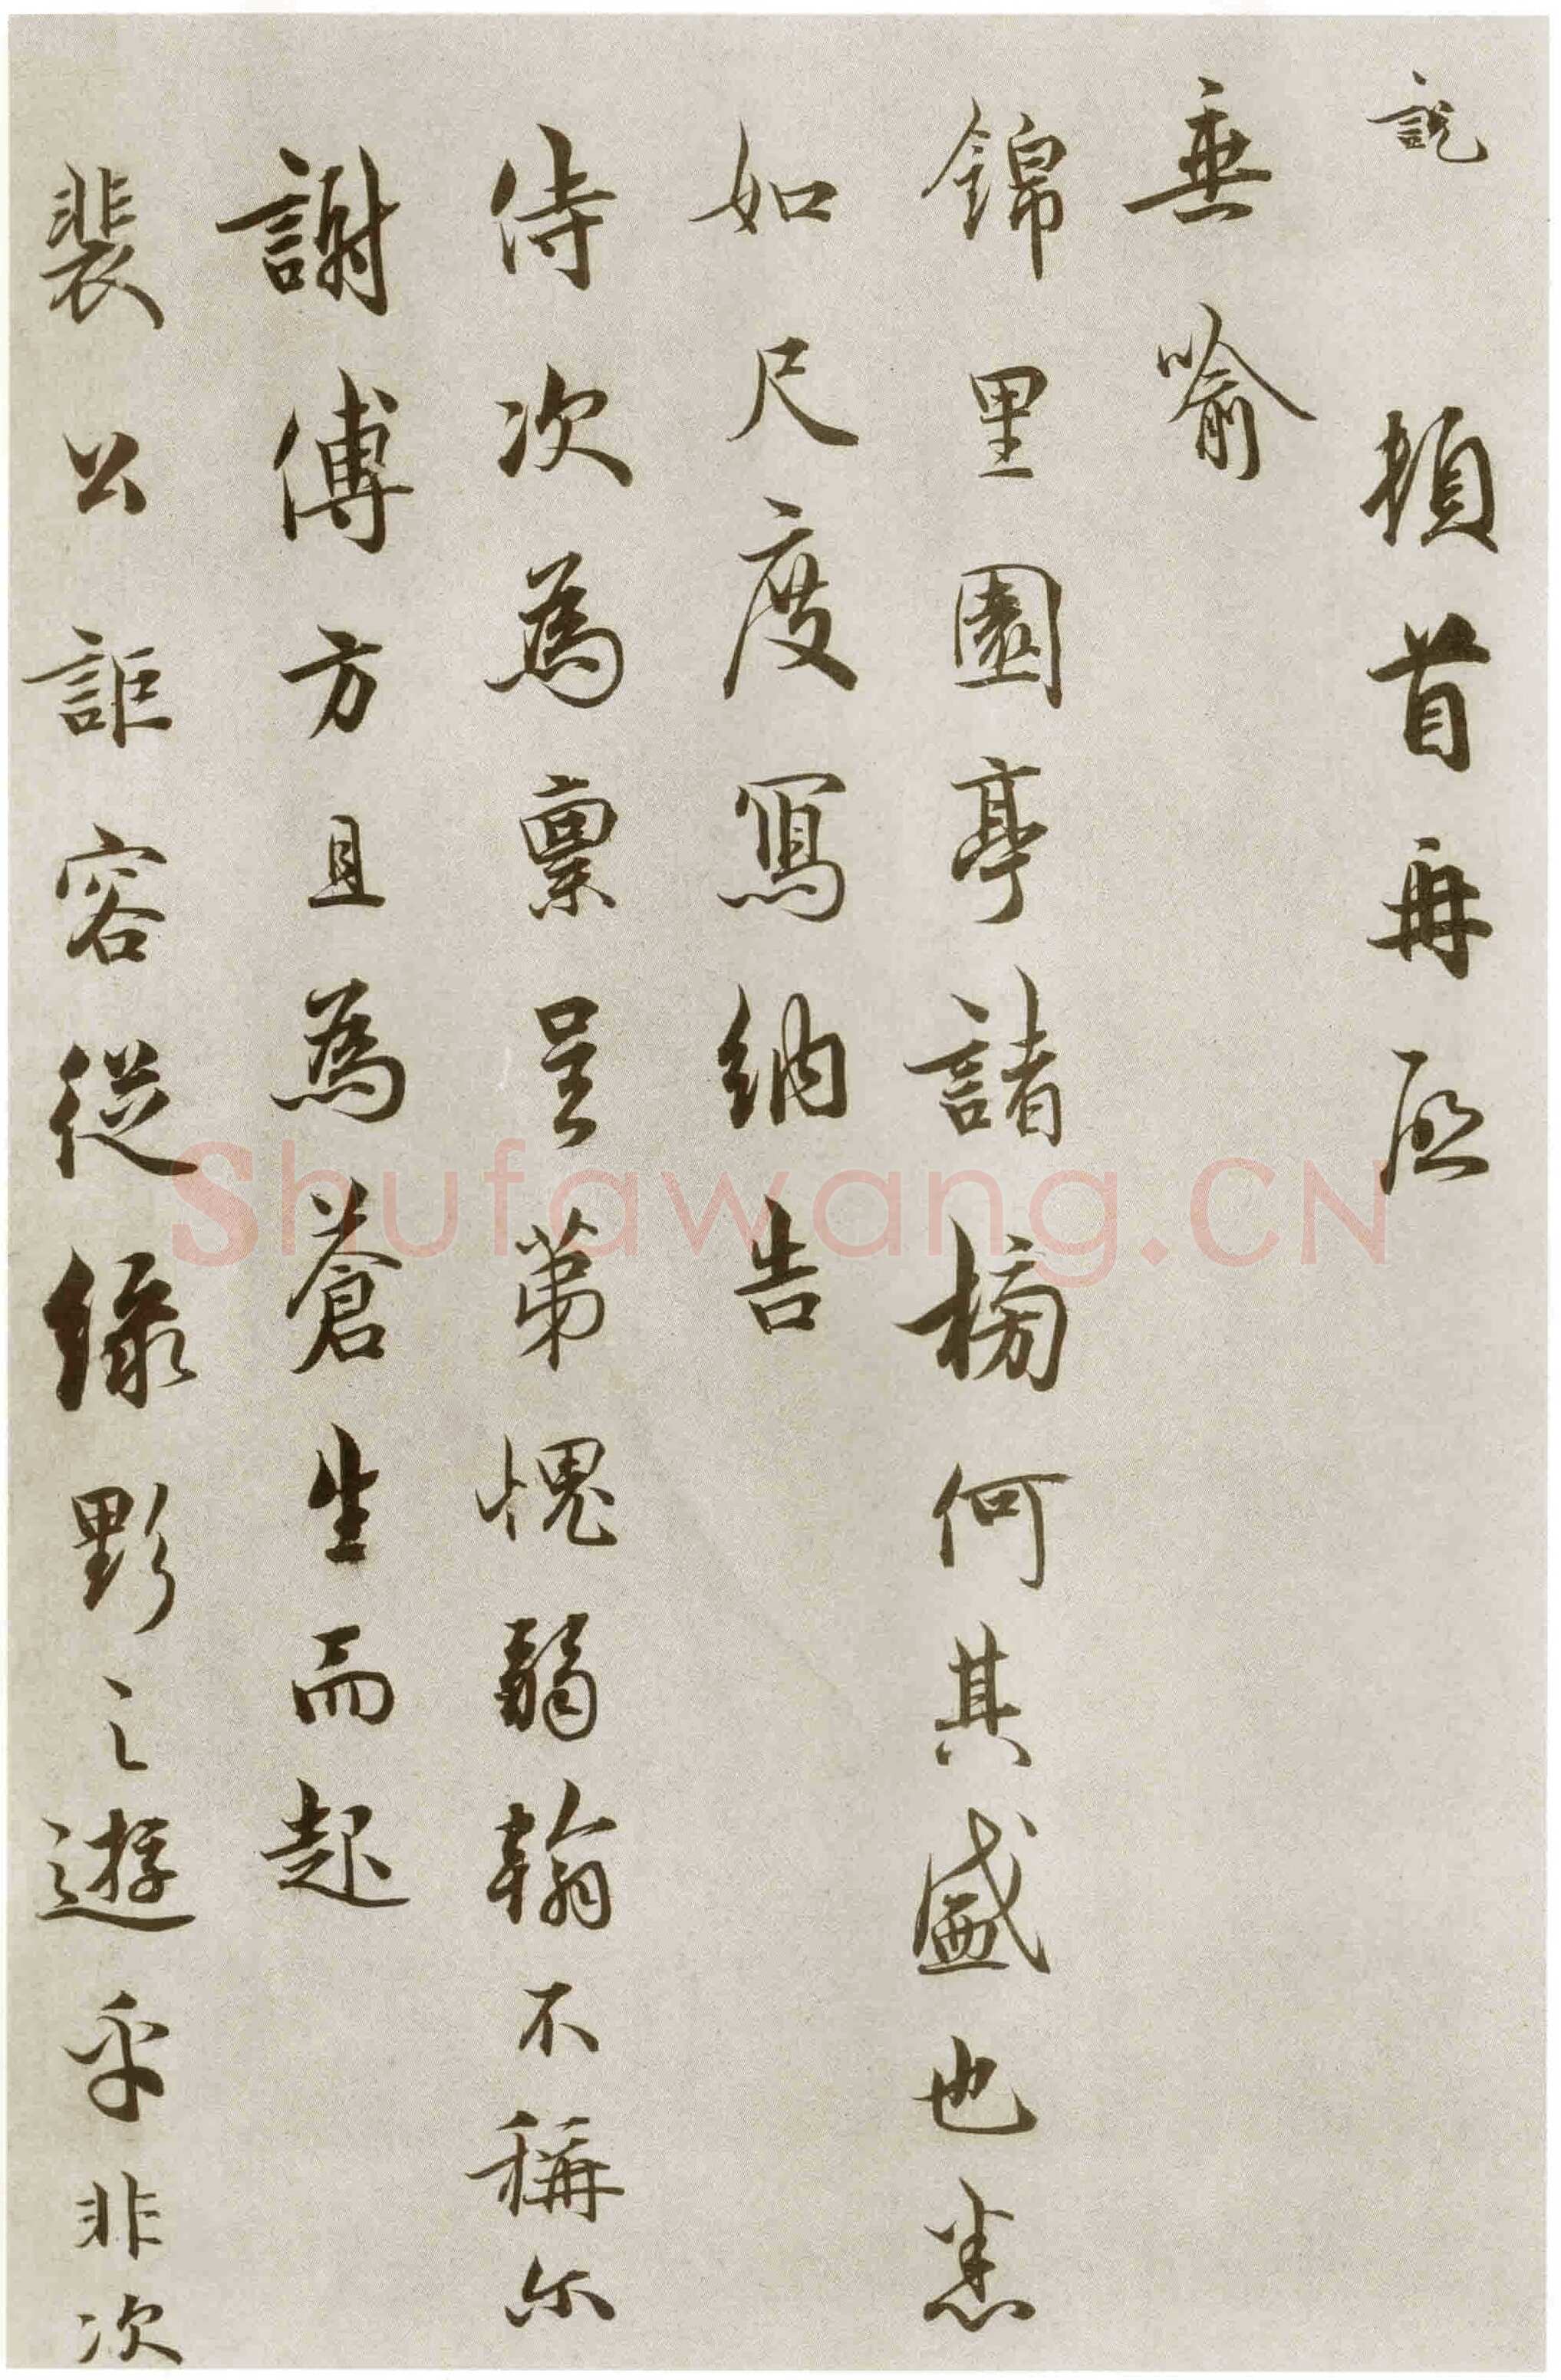 說 頓首再啓
垂喻
錦里園亭諸榜何其盛也悉
如尺度寫納告
侍次為稟呈苐愧弱翰不稱尓
謝傅方且為蒼生而起
裴公詎容從綠野之遊乎非次
Shufawang.CN